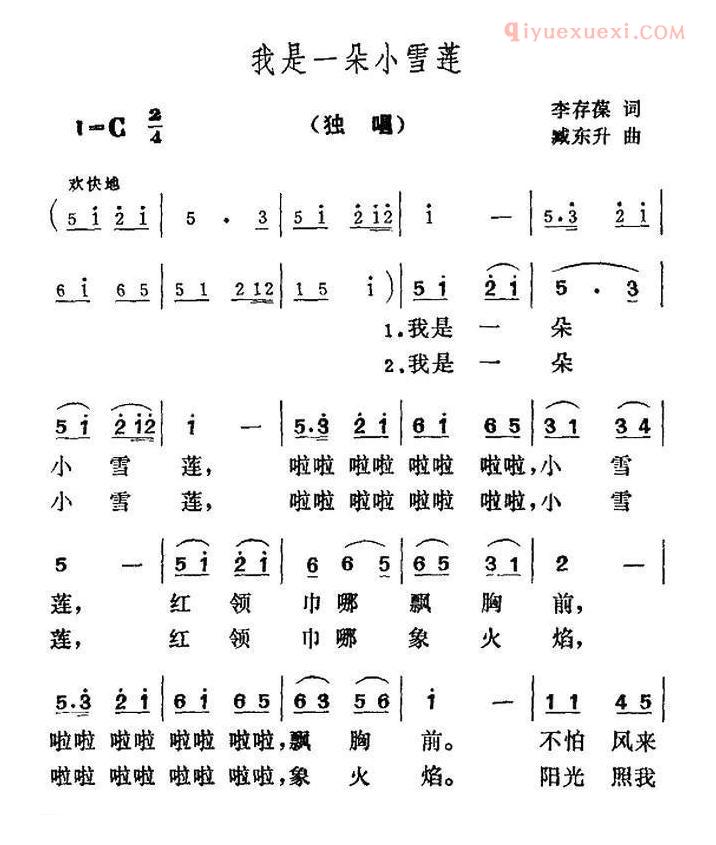 qiyuexuexi.com
我是一朵小雪莲
1=C 2/4 （独唱） 李存葆 词
臧东升 曲
欢快地
(5 i̇ 2̇ i̇ | 5 · 3 | 5 i̇ 2̇ i̇2̇ | i̇ — | 5·3̇ 2̇ i̇ |
6 i̇ 6 5 | 5 1 2 12 | 1 5 i̇ ) | 5 i̇ 2̇ i̇ | 5 · 3 |
1.我是 一 朵
2.我是 一 朵
5 i̇ 2̇ i̇2̇ | i̇ — | 5·3̇ 2̇ i̇ | 6 i̇ 6 5 | 3 1 3 4 |
小 雪 莲， 啦啦 啦啦 啦啦 啦啦，小 雪
小 雪 莲， 啦啦 啦啦 啦啦 啦啦，小 雪
5 — | 5 i̇ 2̇ i̇ | 6 6 5 | 6 5 3 1 | 2 — |
莲， 红 领 巾 哪 飘 胸 前，
莲， 红 领 巾 哪 象 火 焰，
5·3̇ 2̇ i̇ | 6 i̇ 6 5 | 6 3 5 6 | i̇ — | 1 1 4 5 |
啦啦 啦啦 啦啦 啦啦，飘 胸 前。 不怕 风来
啦啦 啦啦 啦啦 啦啦，象 火 焰。 阳光 照我